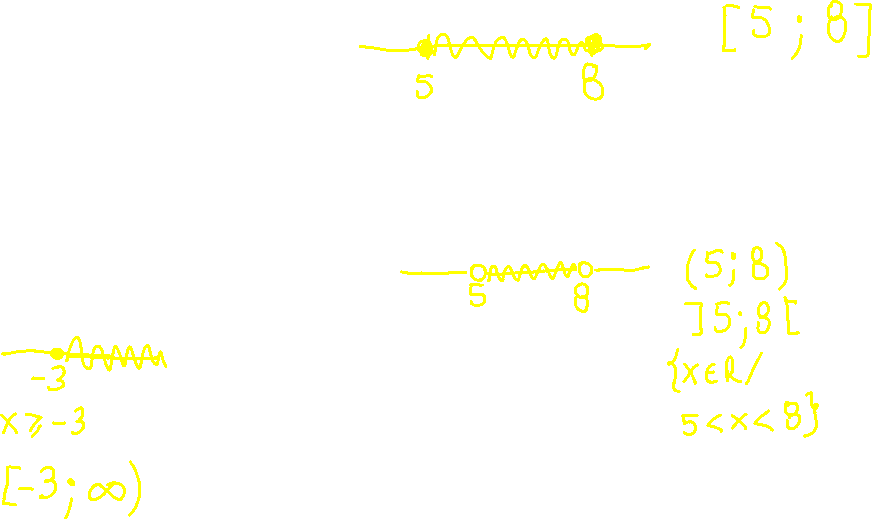 [5 ; 8]
5 8
5 8
(5;8)
]5;8[
{x∈R/
5<x<8}
-3
x⩾-3
[-3; ∞)